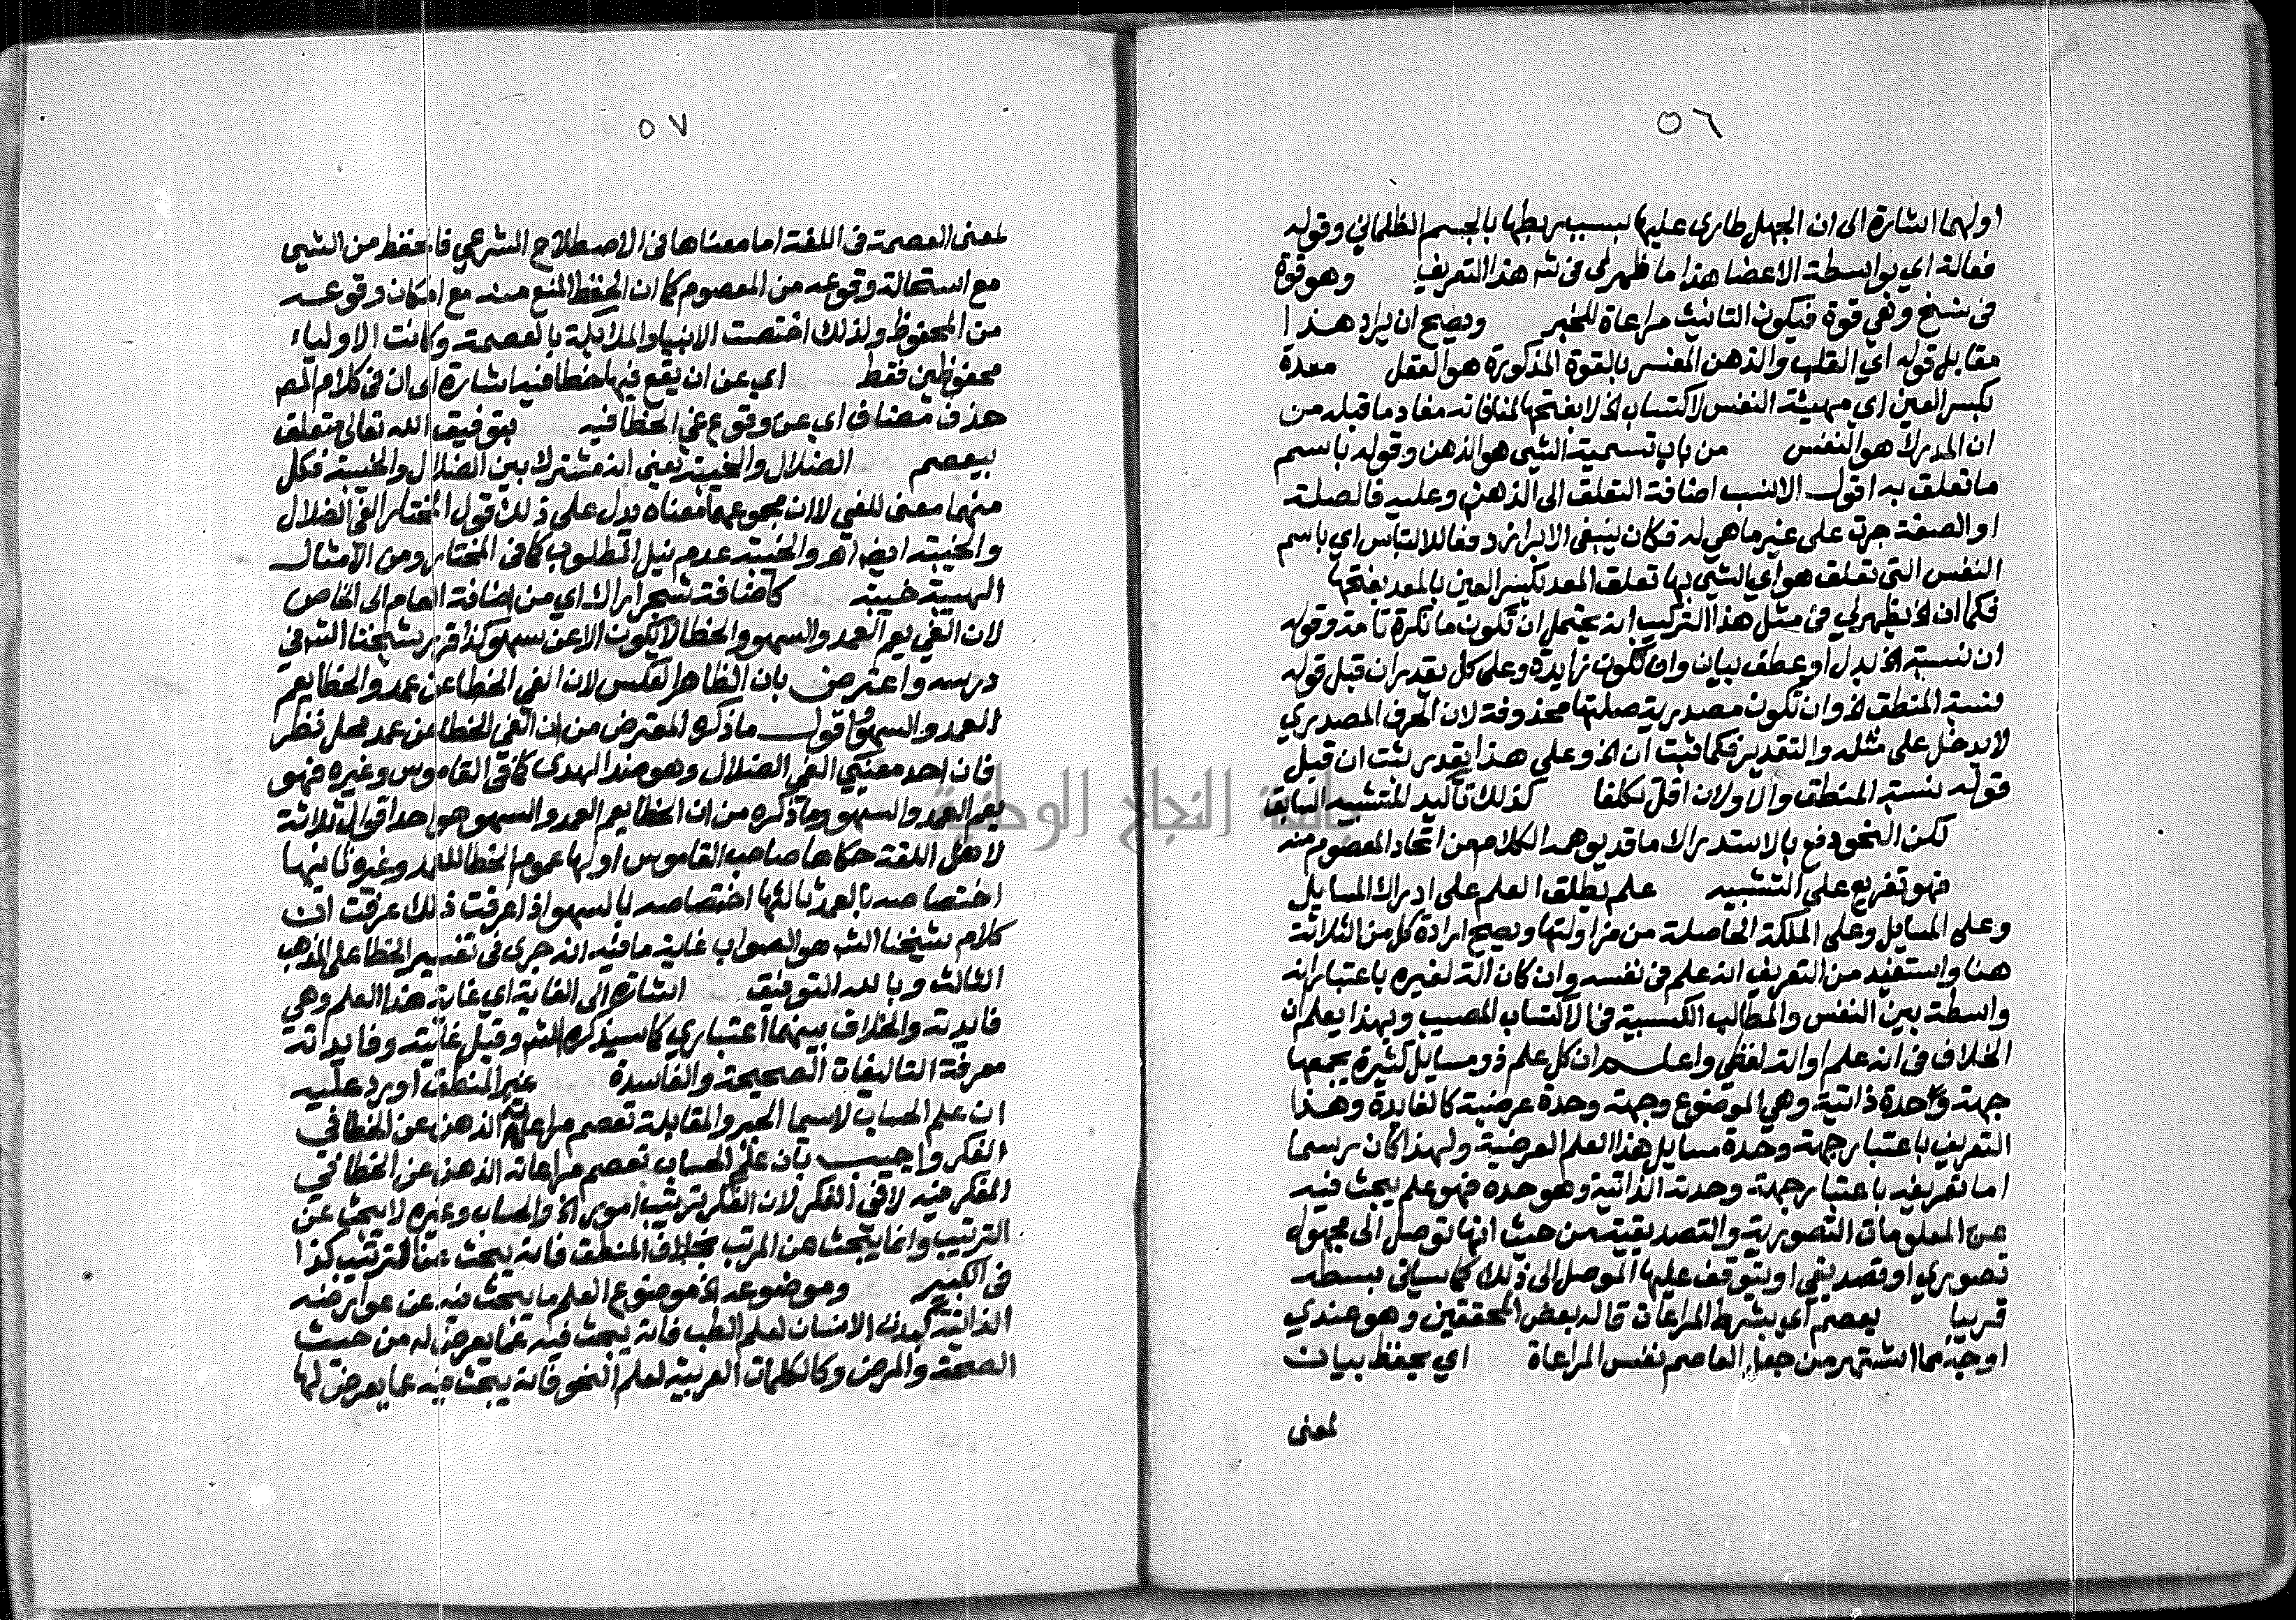 ٥٦
اولهما اشارة الى ان الجهل طارى عليها بسبب ربطها بالجسم الظلماني وقوله
فعالة اي بواسطة الاعضا هذا ما ظهر لى فى شه هذا التعريف وهو قوة
فى نسخ وهي قوة فيكون التانيث مراعاة للخبر ويصح ان يراد هذا
مقابل قوله اي القلب والذهن المفسر بالقوة المذكورة هو العقل معدة
بكسر العين اي مهيئة النفس لاكتساب الخ لا بفتحها لمنافاته مفاد ما قبله من
ان المدرك هو النفس من باب تسمية الشى هو الذهن وقوله باسم
ما تعلق به اقول الانسب اضافة التعلق الى الذهن وعليه فالصلة
او الصفة جرت على غير ما هي له فكان ينبغى الابراز دفعا للالتباس اي باسم
النفس التي تعلق هو اي الشي بها تعلق المعد بكسر العين بالمعد بفتحها
فكما ان الخ يظهر لي فى مثل هذا التركيب انه يحتمل ان تكون ما نكرة تامة وقوله
ان نسبة الخ بدل او عطف بيان وان تكون زايدة وعلى كل يقدر ان قبل قوله
نسبة المنطق الخ وان تكون مصدرية صلتها محذوفة لان الحرف المصدري
لا يدخل على مثله والتقدير فكما ثبت ان الخ وعلى هذا يقدر ثبت ان قبل
قوله نسبة المنطق والاولان اقل تكلفا كذلك تاكيد للتشبيه السابق
لكن النحو دفع بالاستدراك ما قد يوهمه الكلام من اتحاد المعصوم منه
فهو تفريع على التشبيه علم يطلق العلم على ادراك المسايل
وعلى المسايل وعلى الملكة الحاصلة من مزاولتها ويصح ارادة كل من الثلاثة
هنا واستفيد من التعريف انه علم فى نفسه وان كان الة لغيره باعتبار انه
واسطة بين النفس والمطالب الكسبية فى الاكتساب المصيب وبهذا يعلم ان
الخلاف فى انه علم او الة لفظي واعلم ان كل علم ذو مسايل كثيرة يجمعها
جهة وحدة ذاتية وهي الموضوع وجهة وحدة عرضية كالفايدة وهذا
التعريف باعتبار جهة وحدة مسايل هذا العلم العرضية ولهذا كان رسما
اما تعريفه باعتبار جهة وحدته الذاتية وهو حده فهو علم يبحث فيه
عن المعلومات التصورية والتصديقية من حيث انها توصل الى مجهول
تصوري او تصديقي او يتوقف عليها الموصل الى ذلك كما سياتى بسطه
قريبا يعصم اي بشرط المراعات قاله بعض المحققين وهو عندي
اوجه مما اشتهر من جعل العاصم نفس المراعاة اي يحفظ بيان
لمعنى
٥٧
لمعنى العصمة فى اللغة اما معناها فى الاصطلاح الشرعي فالحفظ من الشيى
مع استحالة وقوعه من المعصوم كما ان الحفظ المنع منه مع امكان وقوعه
من المحفوظ ولذلك اختصت الانبيا والملائكة بالعصمة وكانت الاولياء
محفوظين فقط اي عن ان يقع فيها خطا فيه اشارة الى ان فى كلام المص
حذف مضاف اي عن وقوع غي الخطا فيه بتوفيق الله تعالى متعلق
بيعصم الضلال والخيبة يعني انه مشترك بين الضلال والخيبة فكل
منهما معنى للغي لا ان مجموعهما معناه يدل على ذلك قول المختار الغي الضلال
والخيبة ايضا اهـ والخيبة عدم نيل المطلوب كما فى المختار ومن الامثال
الهيبة خيبة كاضافة شجر اراك اي من اضافة العام الى الخاص
لان الغي يعم العمد والسهو والخطا لا يكون الا عن سهو كذا قرر شيخنا الشه في
درسه واعترض بان الظاهر العكس لان الغي الخطا عن عمد والخطا يعم
العمد والسهو اقول ما ذكره المعترض من ان الغي الخطا عن عمد محل نظر
فان احد معنيي الغي الضلال وهو ضد الهدى كما فى القاموس وغيره فهو
يعم العمد والسهو وما ذكره من ان الخطا يعم العمد والسهو هو احد اقوال ثلاثة
لاهل اللغة حكاها صاحب القاموس اولها عموم الخطا للعمد وغيره ثانيها
اختصاصه بالعمد ثالثها اختصاصه بالسهو اذا عرفت ذلك عرفت ان
كلام شيخنا الشه هو الصواب غاية ما فيه انه جرى فى تفسير الخطا على المذهب
الثالث وبالله التوفيق اشارة الى الغاية اي غاية هذا العلم وهي
فايدته والخلاف بينهما اعتباري كما سيذكره الشه وقيل غايته وفايدته
معرفة التاليفات الصحيحة والفاسدة غير المنطق اورد عليه
ان علم الحساب لاسيما الجبر والمقابلة تعصم مراعاته الذهن عن الخطا في
الفكر واجيب بان علم الحساب تعصم مراعاته الذهن عن الخطا في
المفكر فيه لا فى الفكر لان الفكر ترتيب امور الخ والحساب وغيره لا يبحث عن
الترتيب وانما يبحث عن المرتب بخلاف المنطق فانه يبحث عن الترتيب كذا
فى الكبير وموضوعه الخ موضوع العلم ما يبحث فيه عن عوارضه
الذاتية كبدن الانسان لعلم الطب فانه يبحث فيه عما يعرض له من حيث
الصحة والمرض وكالكلمات العربية لعلم النحو فانه يبحث فيه عما يعرض لها
جامعة النجاح الوطنية